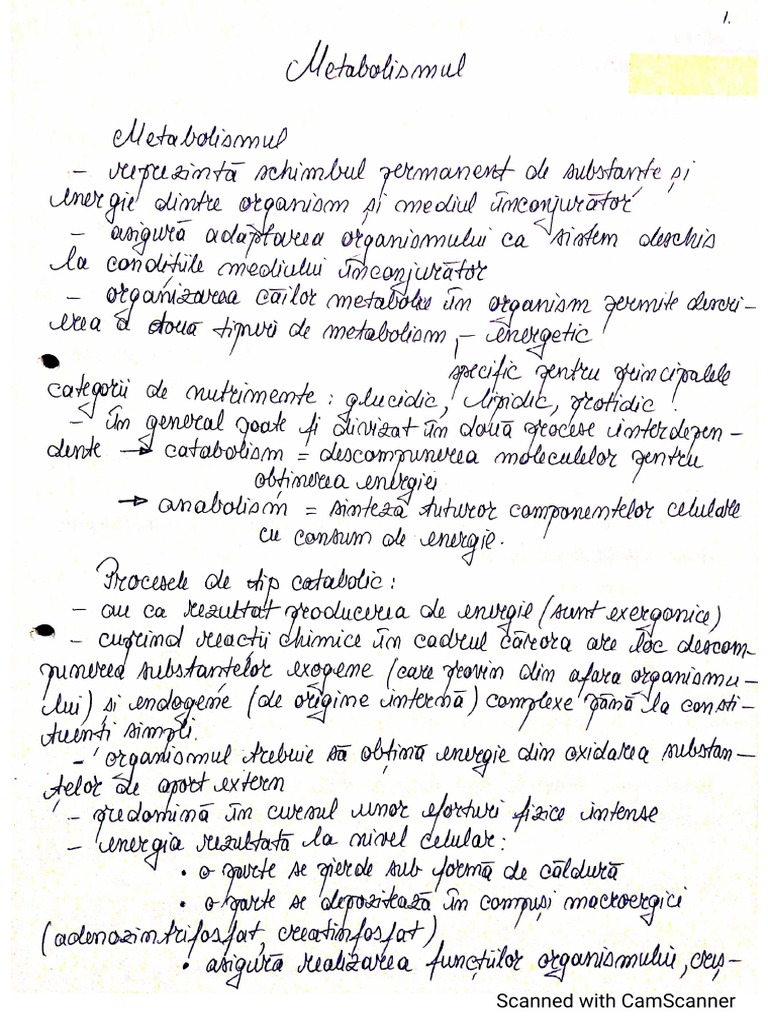 1.
Metabolismul
Metabolismul
- reprezintă schimbul permanent de substanțe și
energie dintre organism și mediul înconjurător
- asigură adaptarea organismului ca sistem deschis
la condițiile mediului înconjurător
- organizarea căilor metabolice în organism permite descri-
erea a două tipuri de metabolism - energetic
specific pentru principalele
categorii de nutrimente: glucidic, lipidic, protidic.
- în general poate fi divizat în două procese interdepen-
dente → catabolism = descompunerea moleculelor pentru
obținerea energiei
→ anabolism = sinteza tuturor componentelor celulare
cu consum de energie.
Procesele de tip catabolic:
- au ca rezultat producerea de energie (sunt exergonice)
- cuprind reacții chimice în cadrul cărora are loc descom-
punerea substanțelor exogene (care provin din afara organismu-
lui) și endogene (de origine internă) complexe până la consti-
tuenți simpli.
- organismul trebuie să obțină energie din oxidarea substan-
țelor de aport extern
- predomină în cursul unor eforturi fizice intense
- energia rezultată la nivel celular:
• o parte se pierde sub formă de căldură
• o parte se depozitează în compuși macroergici
(adenozintrifosfat, creatinfosfat)
• asigură realizarea funcțiilor organismului, creș-
Scanned with CamScanner